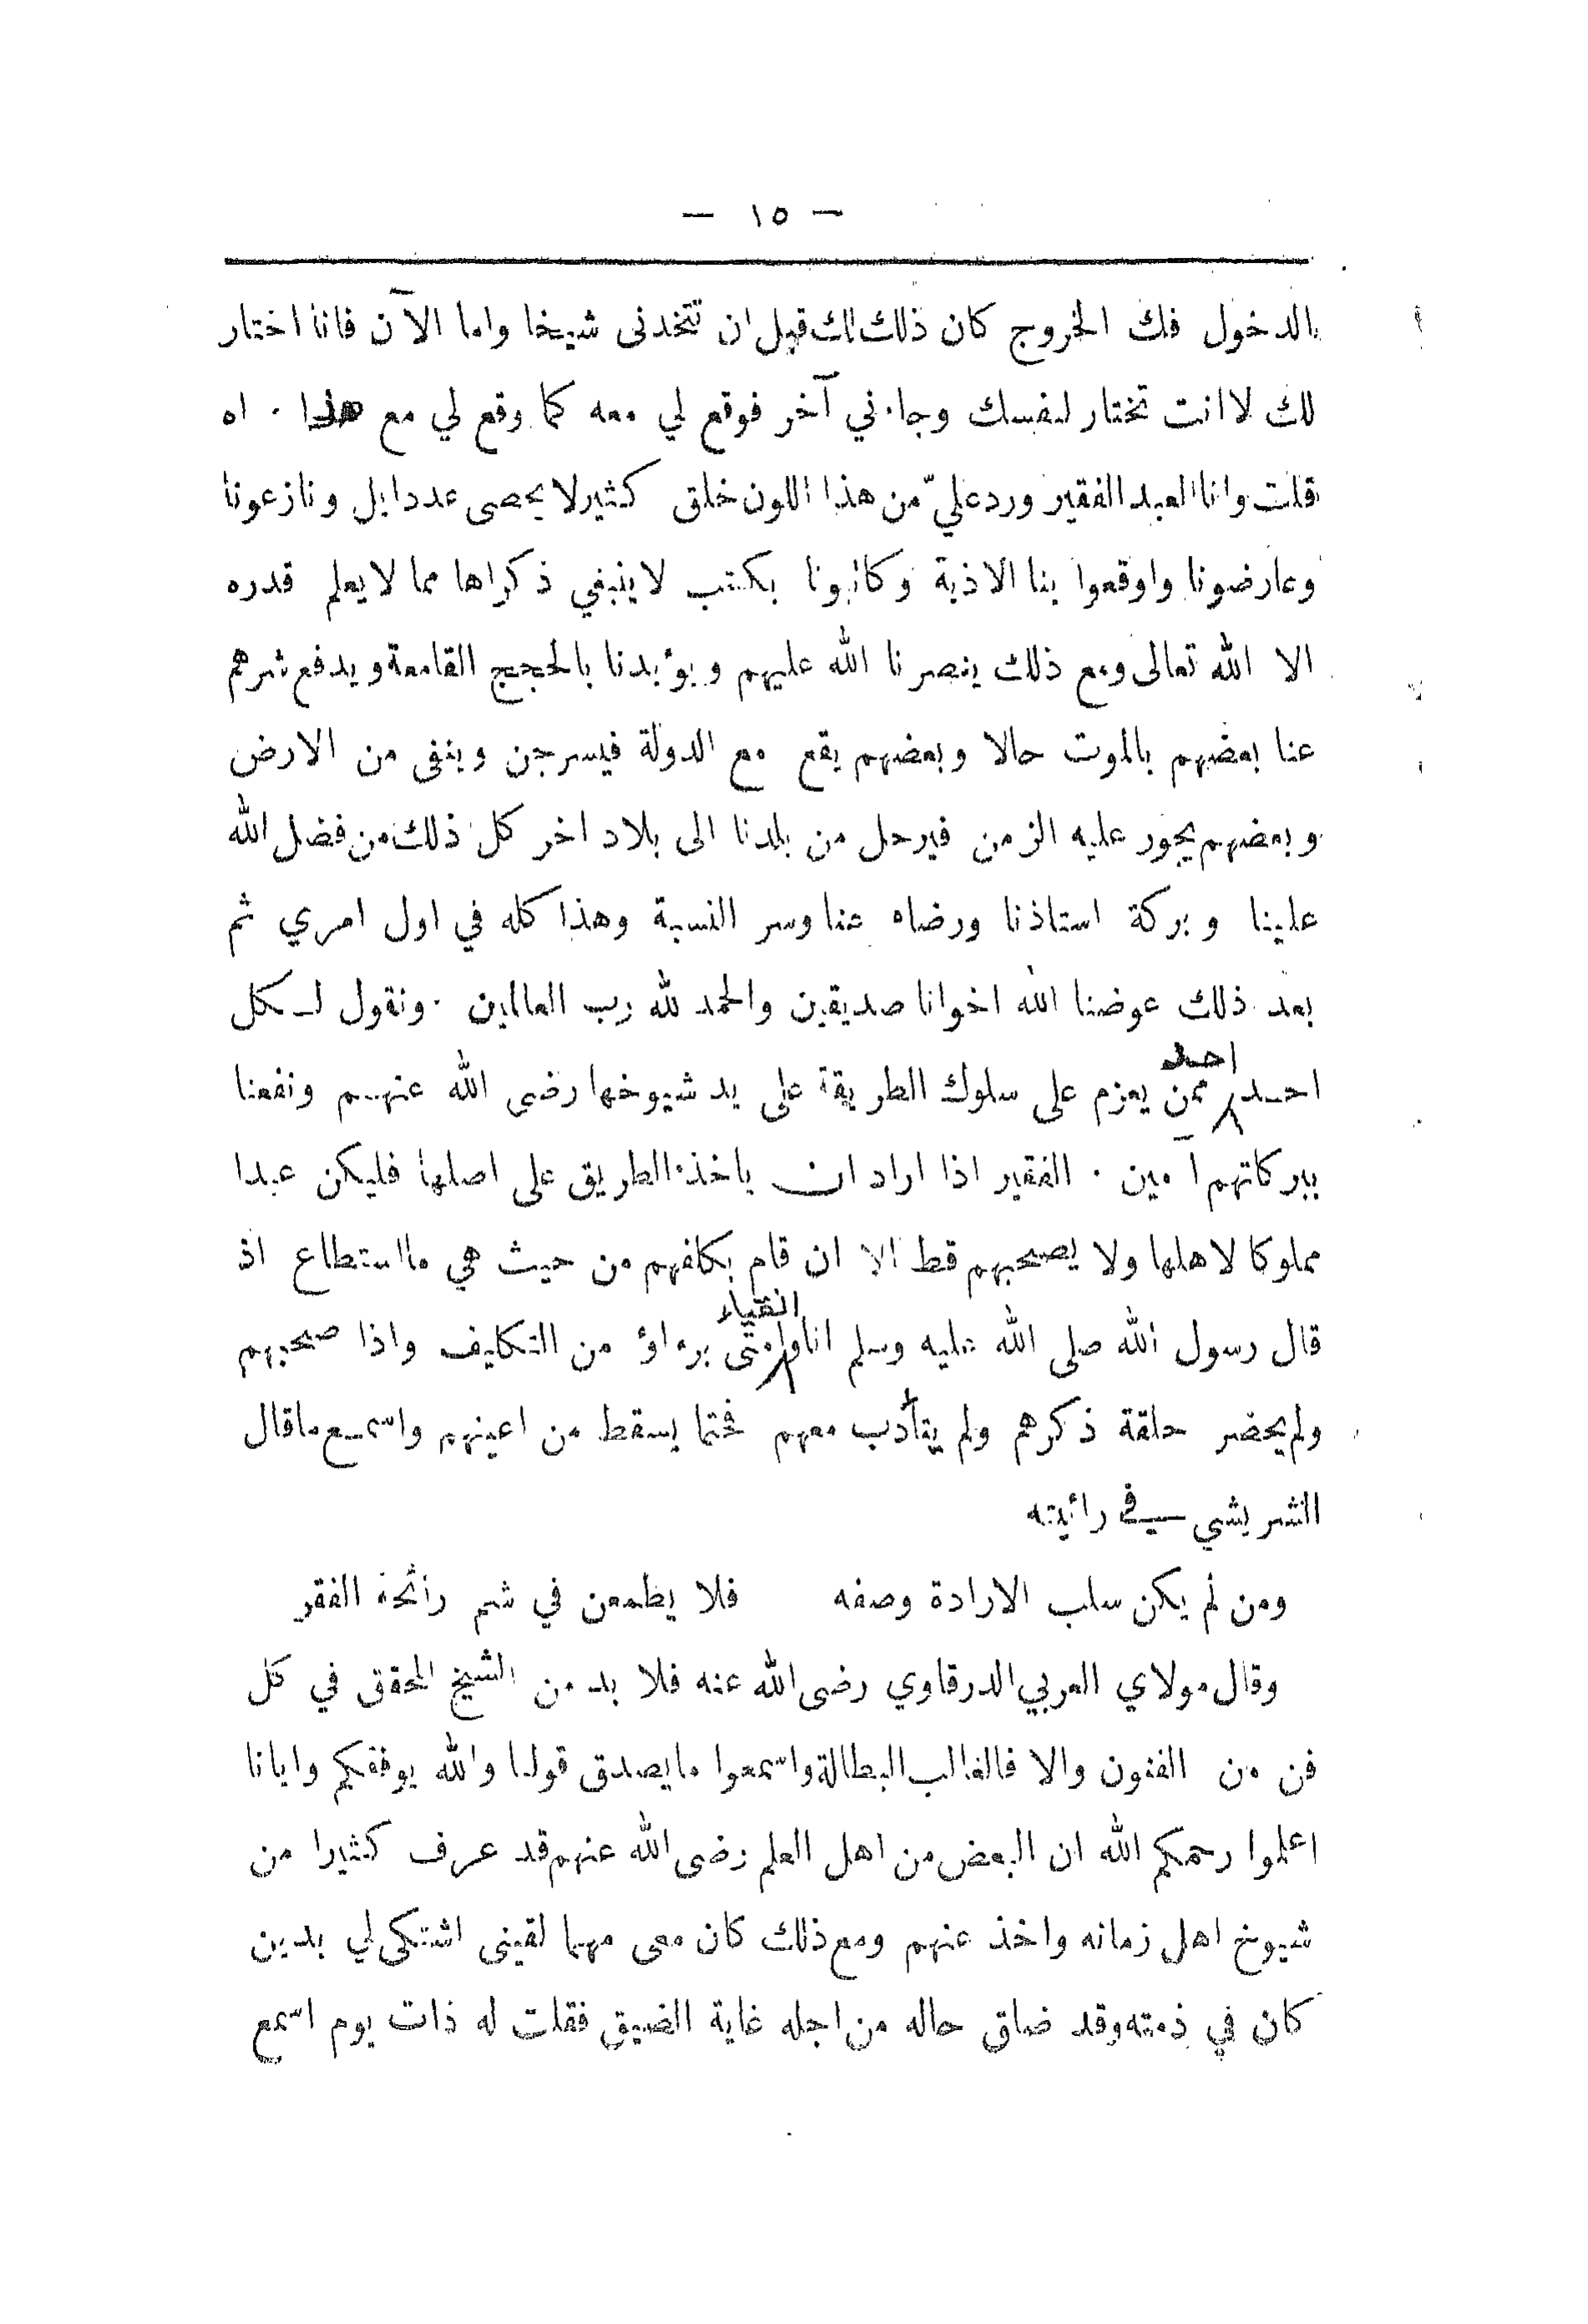 — ١٥ —
الدخول فك الخروج كان ذلك لك قبل ان تتخذنى شيخا واما الآن فانا اختار
لك لا انت تختار لنفسك وجاءني آخر فوقع لي معه كما وقع لي مع هذا . اه
قلت وانا العبد الفقير ورد عليّ من هذا اللون خلق كثير لا يحصى عددا بل ونازعونا
وعارضونا واوقعوا بنا الاذية وكاتبونا بكتب لا ينبغي ذكراها مما لا يعلم قدره
الا الله تعالى ومع ذلك ينصرنا الله عليهم ويؤيدنا بالحجج القامعة ويدفع شرهم
عنا بعضهم بالموت حالا وبعضهم يقع مع الدولة فيسرجن وينفى من الارض
وبعضهم يجور عليه الزمن فيرحل من بلدنا الى بلاد اخر كل ذلك من فضل الله
علينا وبركة استاذنا ورضاه عنا وسر النسبة وهذا كله في اول امري ثم
بعد ذلك عوضنا الله اخوانا صديقين والحمد لله رب العالمين . ونقول لـكل
احد
احـد ممن يعزم على سلوك الطريقة على يد شيوخها رضى الله عنهـم ونفعنا
ببركاتهم آمين . الفقير اذا اراد ان ياخذ الطريق على اصلها فليكن عبدا
مملوكا لاهلها ولا يصحبهم قط الا ان قام بكلفهم من حيث هي ما استطاع اذ
اتقياء
قال رسول الله صلى الله عليه وسلم انا وامتى برءاؤ من التكليف واذا صحبهم
ولم يحضر حلقة ذكرهم ولم يتأدب معهم فحتما يسقط من اعينهم واسمـع ما قال
الشريشي في رائيته
ومن لم يكن سلب الارادة وصفه فلا يطمعن في شم رائحة الفقر
وقال مولاي العربي الدرقاوي رضى الله عنه فلا بد من الشيخ المحقق في كل
فن من الفنون والا فالغالب البطالة واسمعوا ما يصدق قولنا والله يوفقكم وايانا
اعلموا رحمكم الله ان البعض من اهل العلم رضى الله عنهم قد عرف كثيرا من
شيوخ اهل زمانه واخذ عنهم ومع ذلك كان معى مهما لقينى اشتكى لي بدين
كان في ذمته وقد ضاق حاله من اجله غاية الضيق فقلت له ذات يوم اسمع